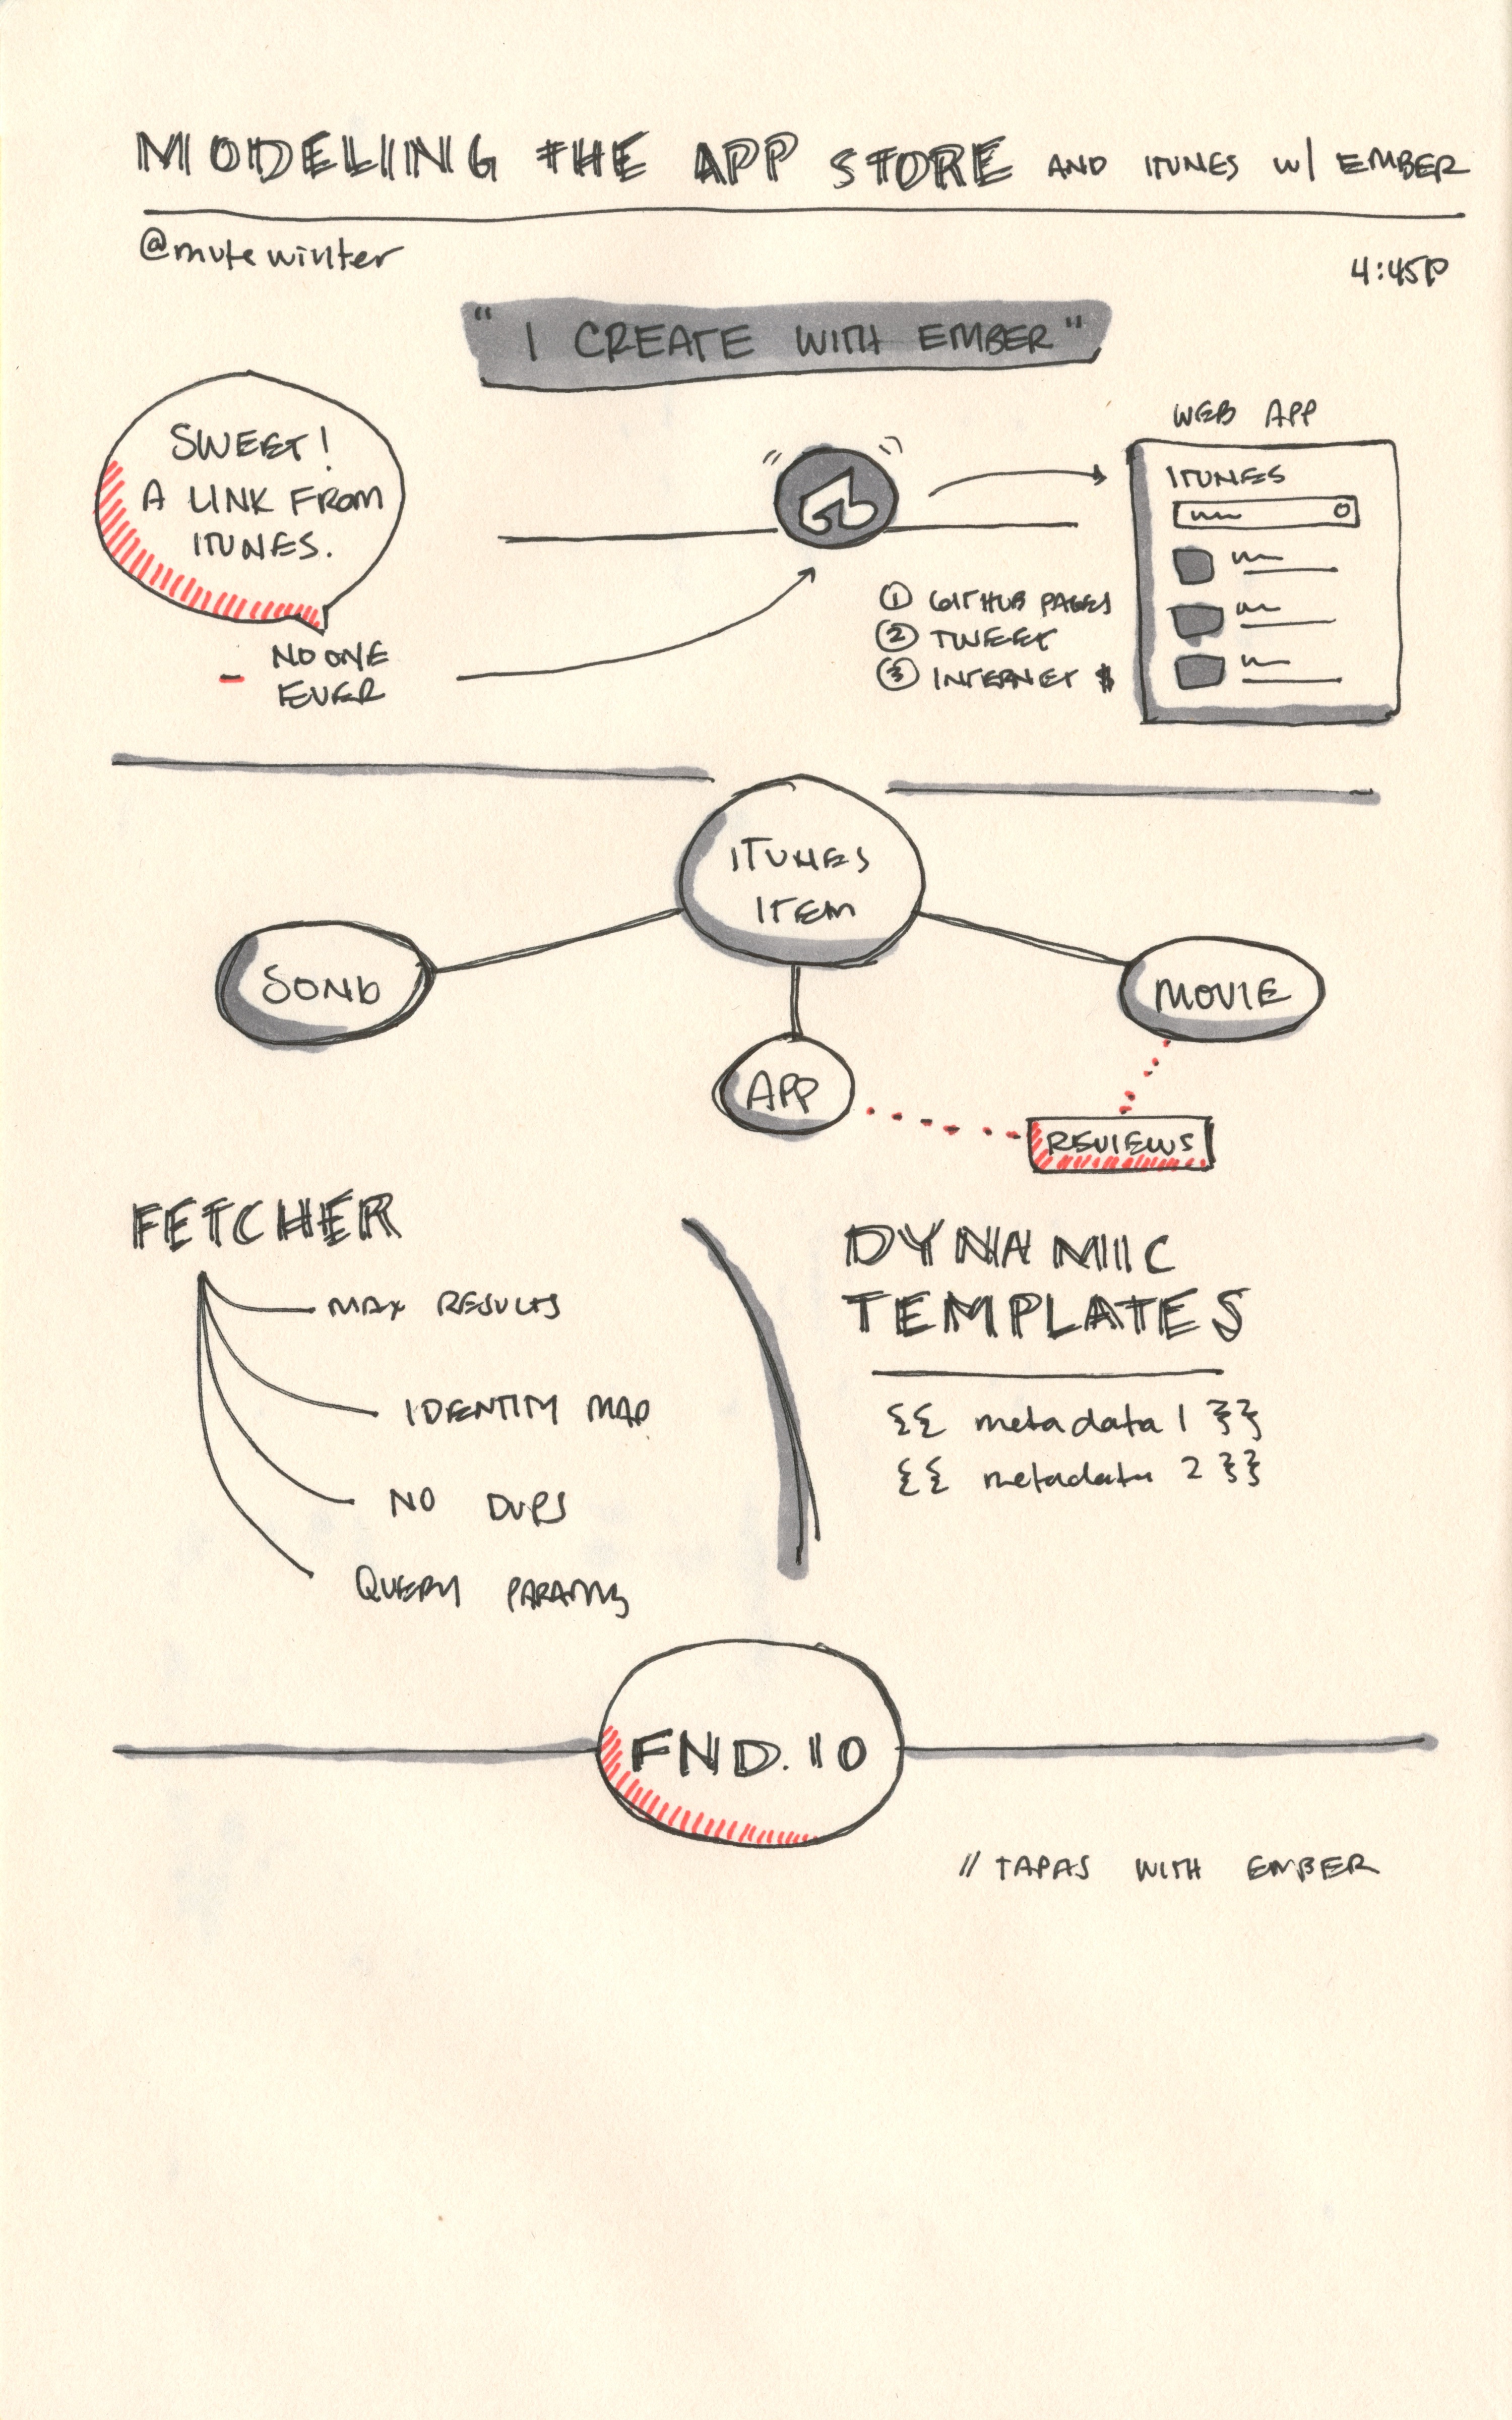 MODELING THE APP STORE AND ITUNES W/ EMBER
@mutewinter
4:45P
"I CREATE WITH EMBER"
SWEET!
A LINK FROM
ITUNES.
- NO ONE
EVER
① GITHUB PAGES
② TWEET
③ INTERNET $
WEB APP
ITUNES
ITUNES
ITEM
SONG
MOVIE
APP
REVIEWS
FETCHER
MAX RESULTS
IDENTITY MAP
NO DUPS
QUERY PARAMS
DYNAMIC
TEMPLATES
{{ metadata 1 }}
{{ metadata 2 }}
FND.IO
// TAPAS WITH EMBER